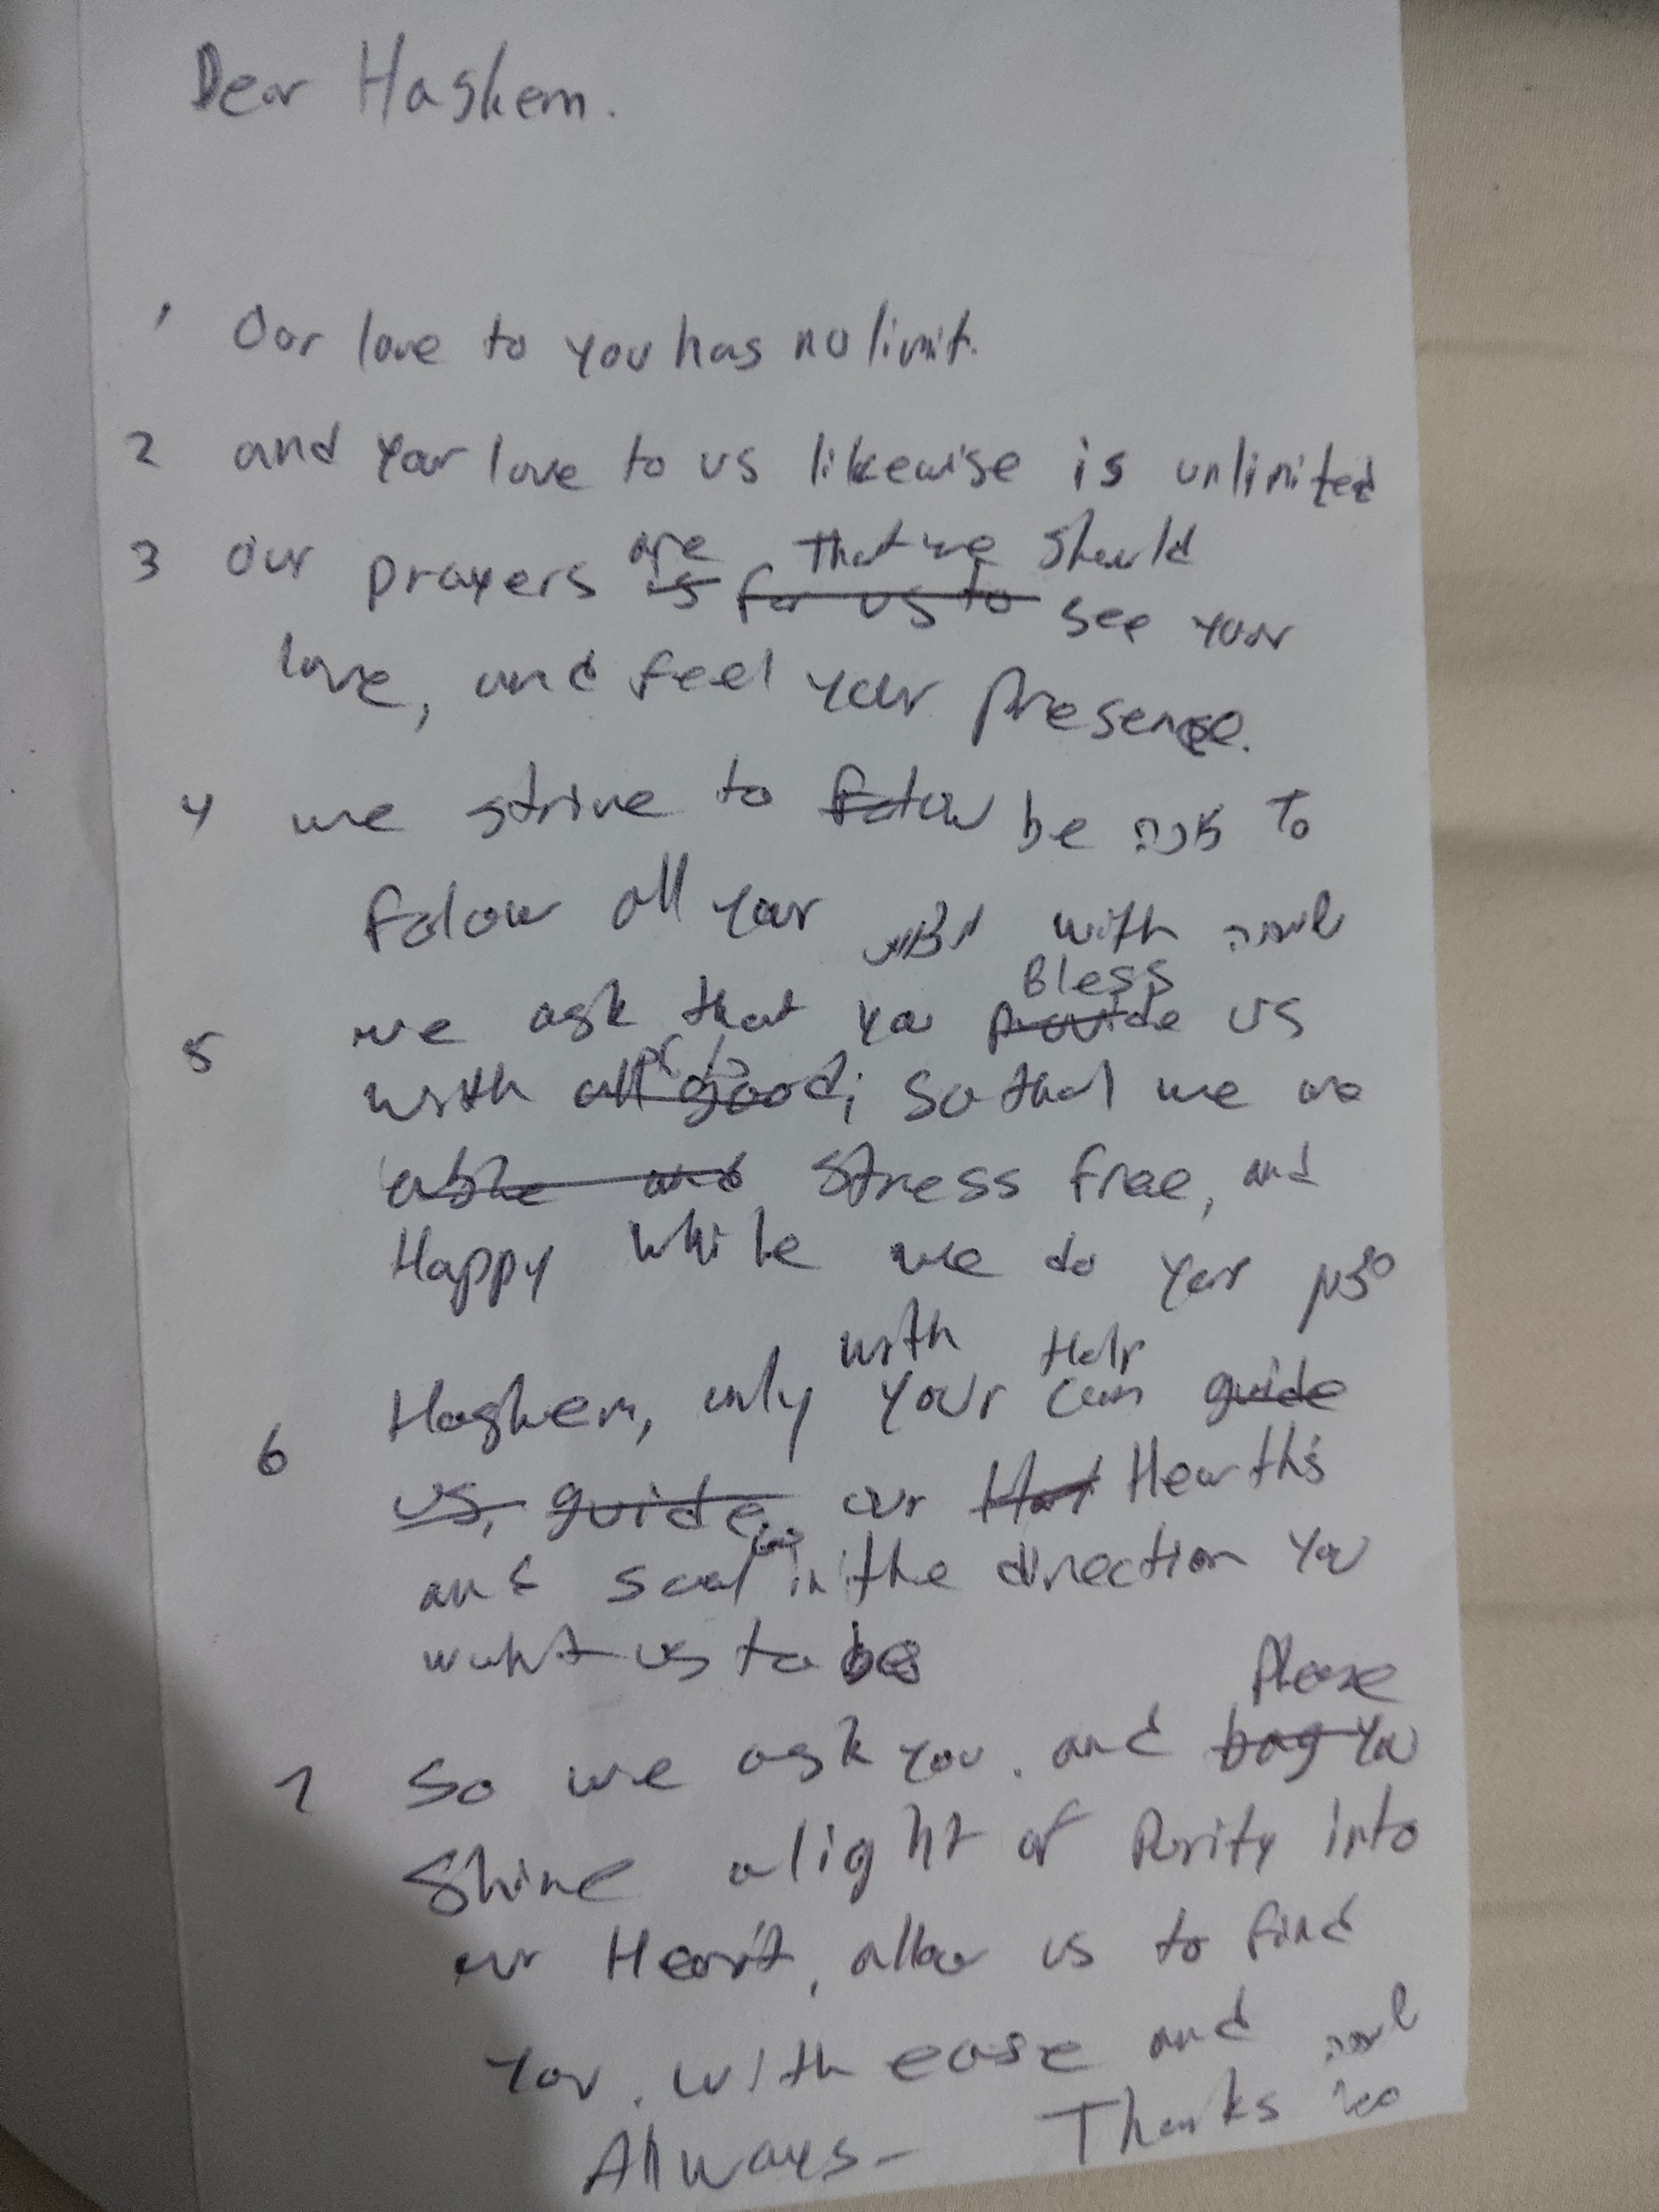 Dear Hashem.
1 Our love to you has no limit.
2 and your love to us likewise is unlimited
are that we should
3 our prayers is for us to see your
love, and feel your presence.
4 we strive to folow be זוכה To
folow all your מצות with שמחה
Bless
5 we ask that you provide us
with all good, so that we are
able and stress free, and
Happy while we do your
with Help
6 Hashem, only your can guide
us, guide our Hearth's
and soul in the direction you
want us to be
Please
7 so we ask you. and bag you
Shine a light of Purity into
our Heart, allow us to find
You. with ease and שמחה
Allways- Thanks